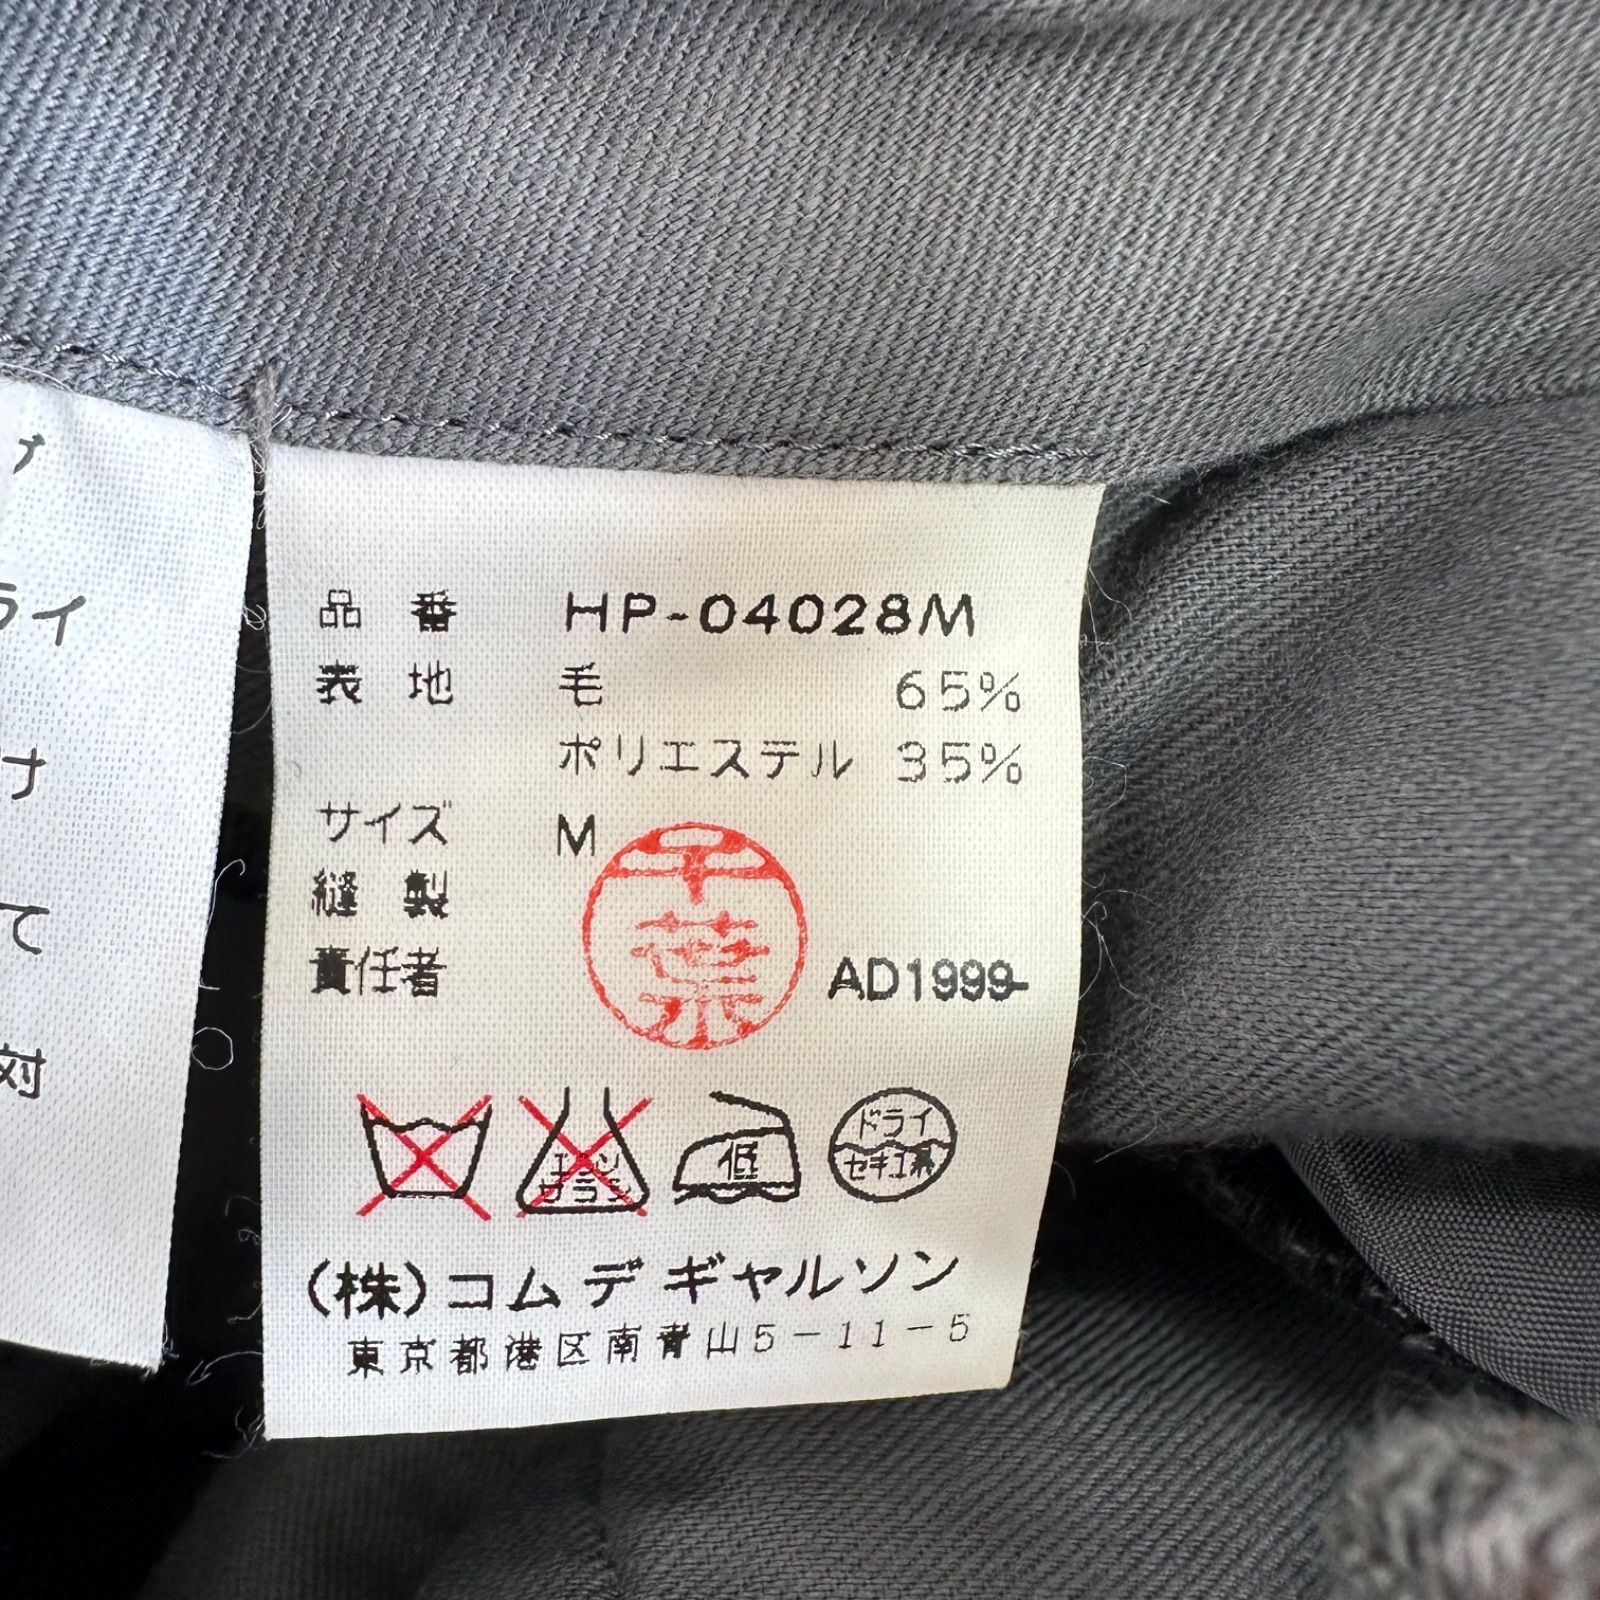 ライ
け
て
対
品番 HP-04028M
表地 毛 65%
ポリエステル 35%
サイズ M
縫製
責任者
千葉
AD1999-
エンソ
サラシ
低
ドライ
セキユ系
(株)コムデギャルソン
東京都港区南青山5-11-5